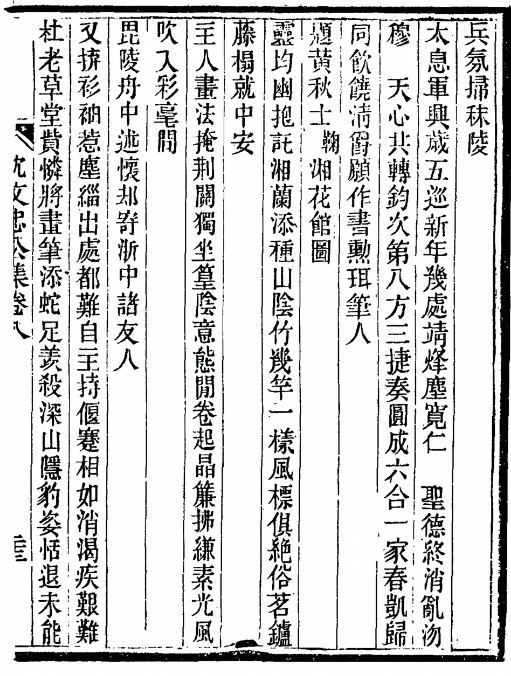 兵氛掃秣陵
太息軍興歲五巡新年幾處靖烽塵寬仁　聖德終消亂沕
穆　天心共轉鈞次第八方三捷奏圓成六合一家春凱歸
同飲饒淸爵願作書勲珥筆人
題黃秋士鞠湘花館圖
靈均幽抱託湘蘭添種山陰竹幾竿一樣風標俱絶俗茗鑪
藤榻就中安
王人畫法掩荆關獨坐篁陰意態閒卷起晶簾拂縑素光風
吹入彩毫間
毘陵舟中述懷却寄浙中諸友人
又擠衫袖惹塵緇出處都難自主持偃蹇相如消渴疾艱難
杜老草堂貲憐將畫筆添蛇足羡殺深山隱豹姿恬退未能
沈文忠公集卷八